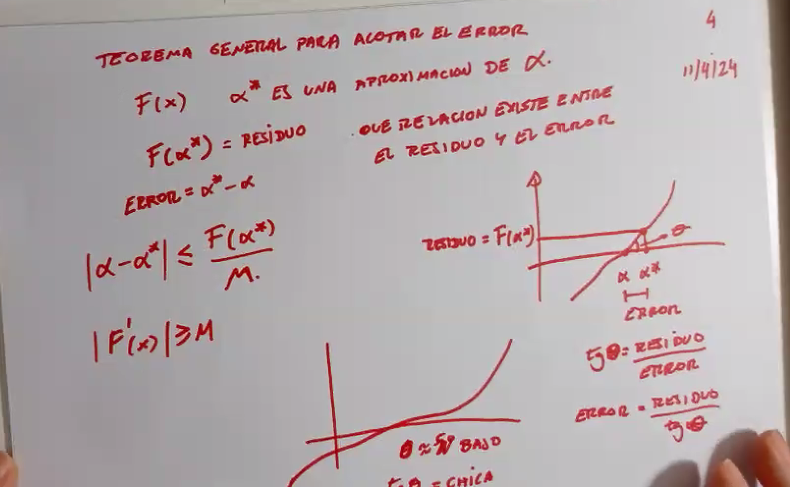 4
TEOREMA GENERAL PARA ACOTAR EL ERROR
11/4/24
F(x) α* ES UNA APROXIMACION DE α.
F(α*) = RESIDUO
QUE RELACION EXISTE ENTRE
EL RESIDUO Y EL ERROR
ERROR = α* - α
|α-α*| ≤ F(α*)/M.
RESIDUO = F(α*)
θ
α α*
ERROR
|F'(x)| ≥ M
tg θ = RESIDUO/ERROR
ERROR = RESIDUO/tg θ
θ ≈ BAJO
tg θ = CHICA